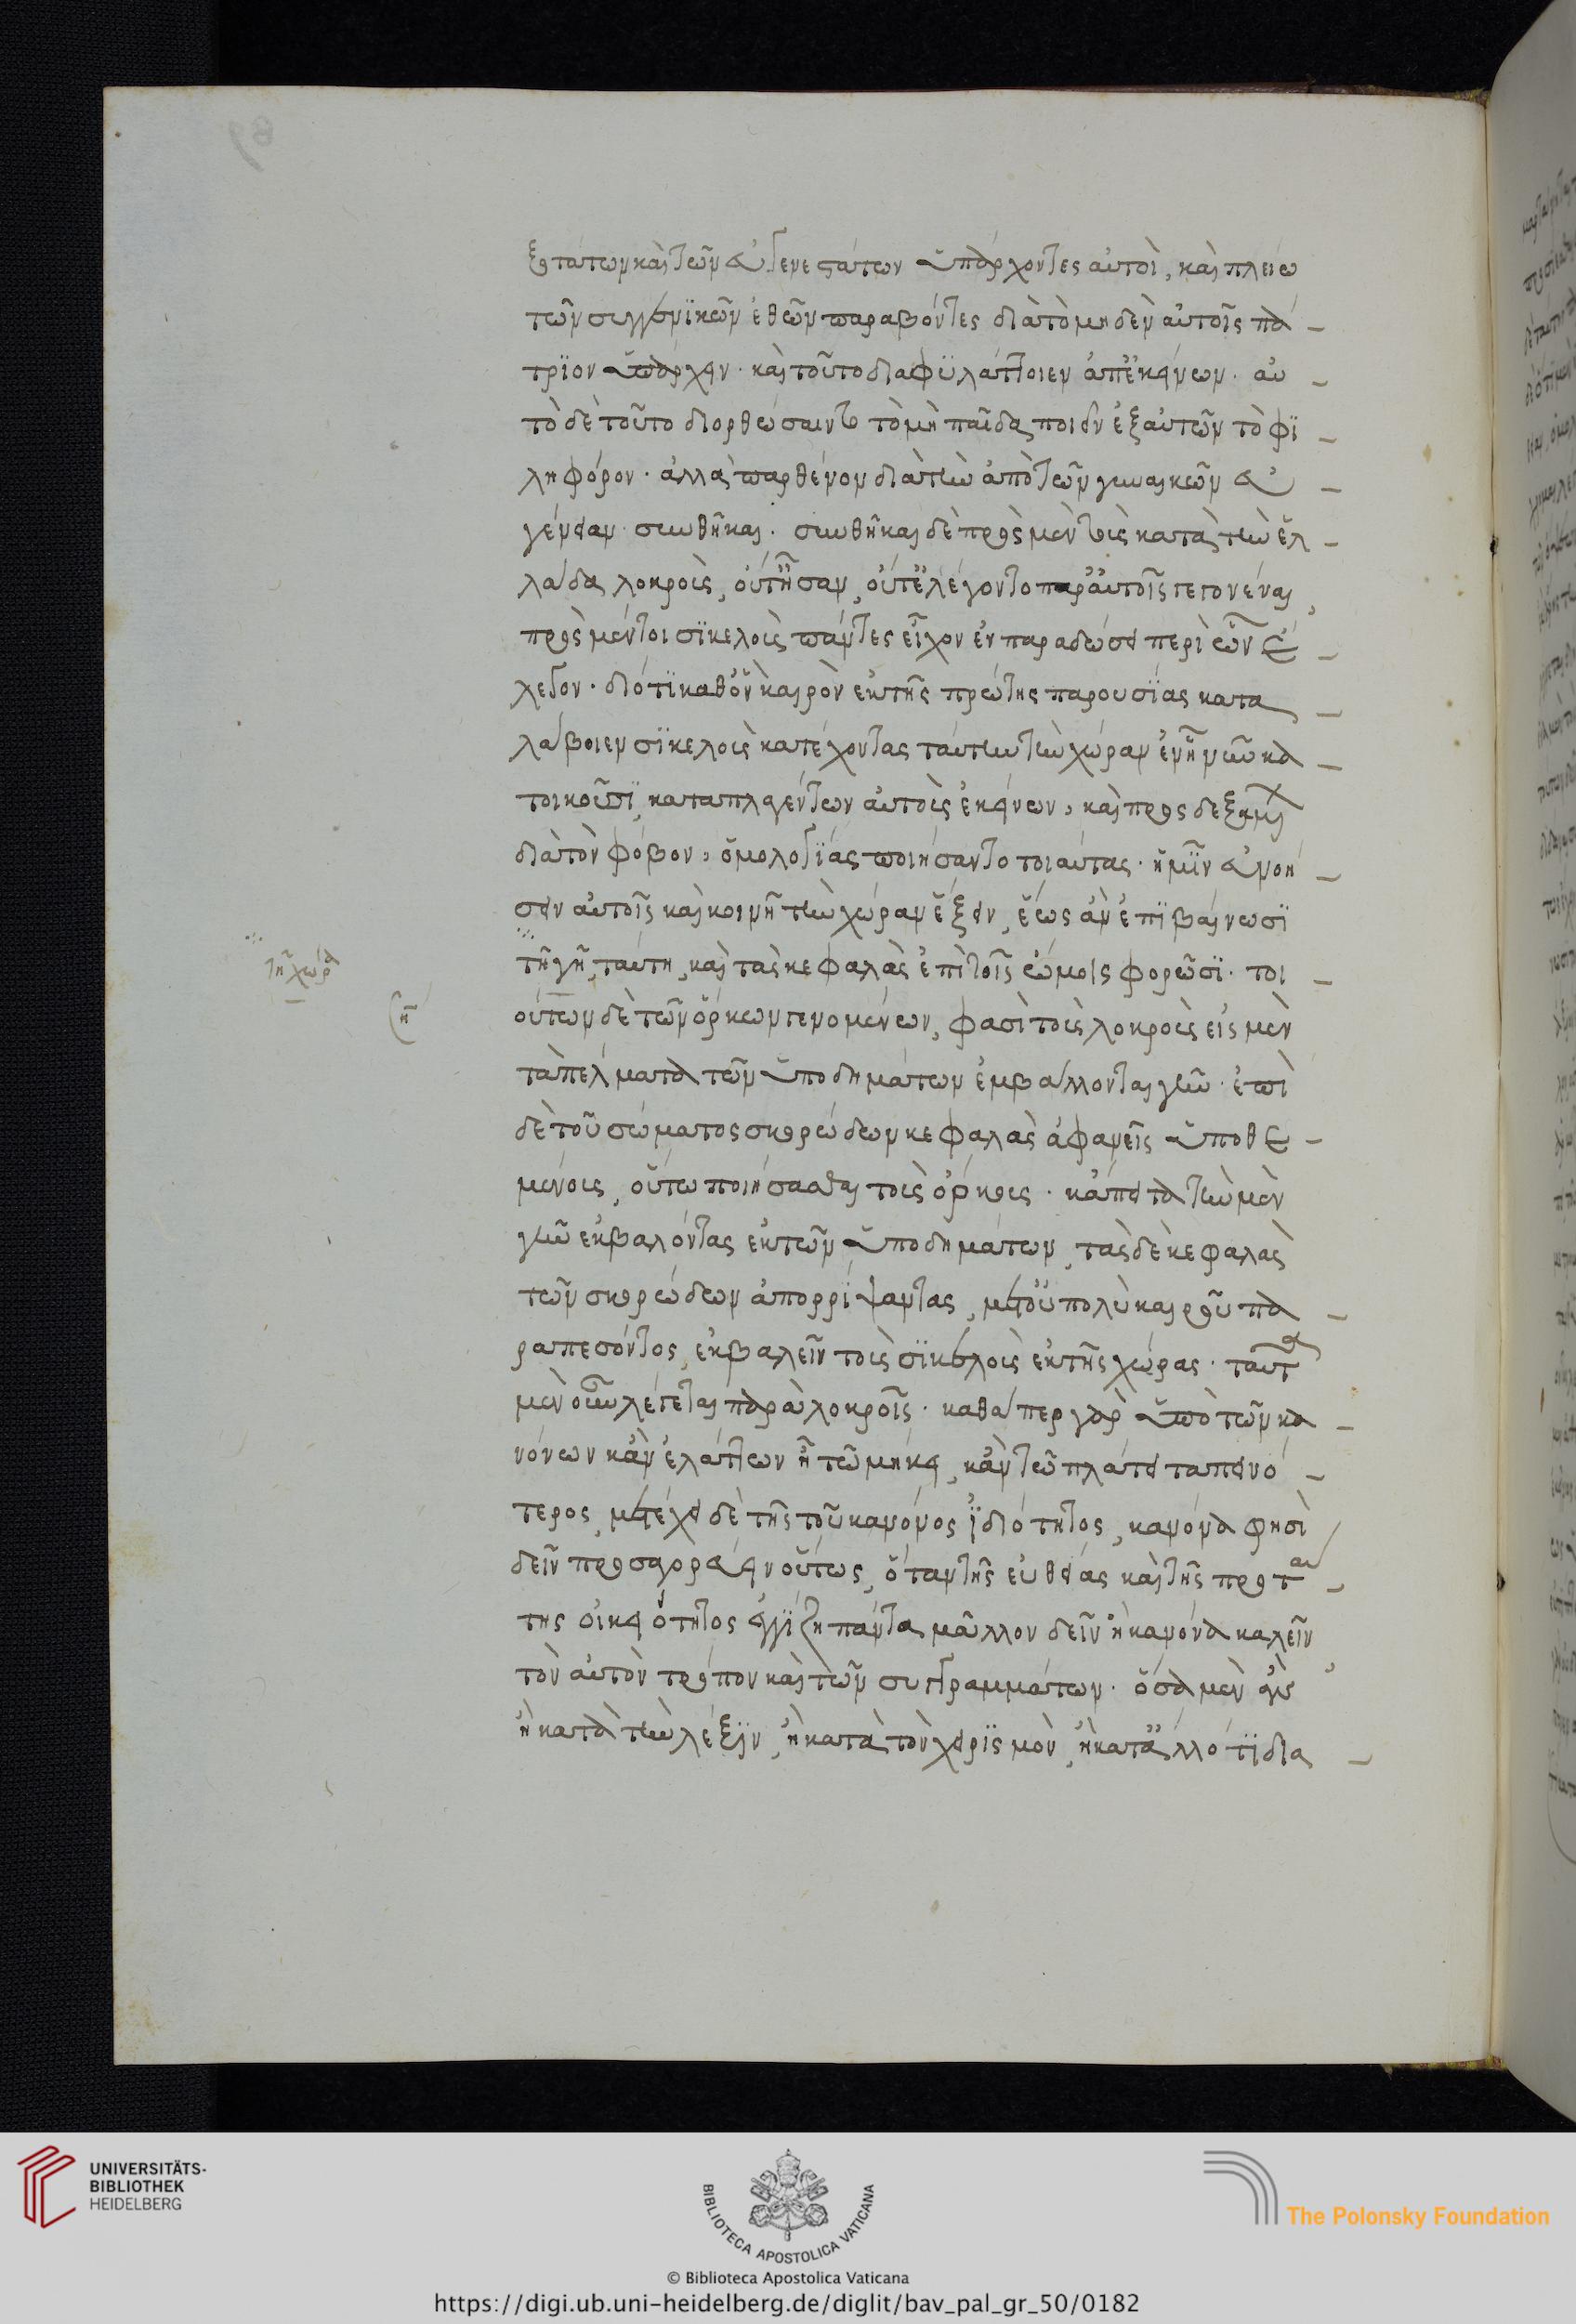 ξοτάτων καὶ τῶν εὐγενεστάτων ὑπάρχοντες αὐτοὶ, καὶ πλείω
τῶν σικελικῶν ἐθῶν παραλαβόντες διὰ τὸ μηδὲν αὐτοῖς πά-
τριον ὑπάρχειν· καὶ τοῦτο διαφυλάττοιεν ἀπ' ἐκείνων· αὐ-
τὸ δὲ τοῦτο διορθώσαιντο τὸ μὴ παῖδα ποιεῖν ἐξ αὐτῶν τὸ φι-
ληφόρον· ἀλλὰ παρθένον διὰ τὴν ἀπὸ τῶν γυναικῶν εὐ-
γένειαν· συνθῆκαι· συνθῆκαι δὲ πρὸς μὲν τοὺς κατὰ τὴν ἑλ-
λάδα λοκροὺς, οὔτ' ἦσαν, οὔτ' ἐλέγοντο παρ' αὐτοῖς γεγονέναι,
πρὸς μέντοι σικελοὺς πάντες εἶχον ἐν παραδώσει περὶ ὧν ἔ-
λεγον· διότι καθ' ὃν καιρὸν ἐκ τῆς πρώτης παρουσίας κατα-
λάβοιεν σικελοὺς κατέχοντας ταύτην τὴν χώραν ἐν ᾗ νῦν κα-
τοικοῦσι, καταπλαγέντων αὐτοὺς ἐκείνων, καὶ προσδεξαμένων
διὰ τὸν φόβον, ὁμολογίας ποιήσαντο τοιαύτας· ἡμῖν εὐνοή-
σειν αὐτοῖς καὶ κοινῇ τὴν χώραν ἕξειν, ἕως ἂν ἐπιβαίνωσι
τῇ γῇ ταύτῃ, καὶ τὰς κεφαλὰς ἐπὶ τοῖς ὤμοις φορῶσι· τοι-
τῇ χώρα
ούτων δὲ τῶν ὅρκων γενομένων, φασὶ τοὺς λοκροὺς εἰς μὲν
τὰ πέλματα τῶν ὑποδημάτων ἐμβάλλοντας γῆν· ἐπὶ
δὲ τοῦ σώματος σκορώδων κεφαλὰς ἀφανεῖς ὑποθε-
μένους, οὕτω ποιήσασθαι τοὺς ὅρκους· κἄπειτα τὴν μὲν
γῆν ἐκβαλόντας ἐκ τῶν ὑποδημάτων, τὰς δὲ κεφαλὰς
τῶν σκορώδων ἀπορρίψαντας, μετ' οὐ πολὺ καιροῦ πα-
ραπεσόντος, ἐκβαλεῖν τοὺς σικελοὺς ἐκ τῆς χώρας· ταῦτα
μὲν οὖν λέγεται παρὰ λοκροῖς· καθάπερ γὰρ ὑπὸ τῶν κα-
νόνων κἂν ἐλάττων ᾖ τῶ μήκει, κἂν τῶ πλάτει ταπεινό-
τερος, μετέχει δὲ τῆς τοῦ κανόνος ἰδιότητος, κανόνα φησὶ
δεῖν προσαγορεύειν οὕτως, ὅταν τῆς εὐθείας καὶ τῆς πρὸς ταύ-
της οἰκειότητος ἐγγίζῃ πάντα μᾶλλον δεῖν ἢ κανόνα καλεῖν
τὸν αὐτὸν τρόπον καὶ τῶν συγγραμμάτων· ὅσα μὲν ἂν
ἢ κατὰ τὴν λέξιν, ἢ κατὰ τὸν χειρισμὸν, ἢ κατ' ἄλλό τι δια-
UNIVERSITÄTS-
BIBLIOTHEK
HEIDELBERG
BIBLIOTECA APOSTOLICA VATICANA
The Polonsky Foundation
© Biblioteca Apostolica Vaticana
https://digi.ub.uni-heidelberg.de/diglit/bav_pal_gr_50/0182